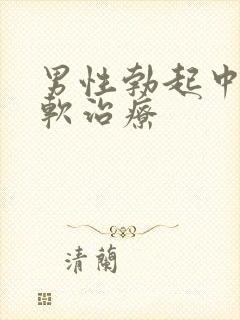 男性勃起中
軟治療
清蘭